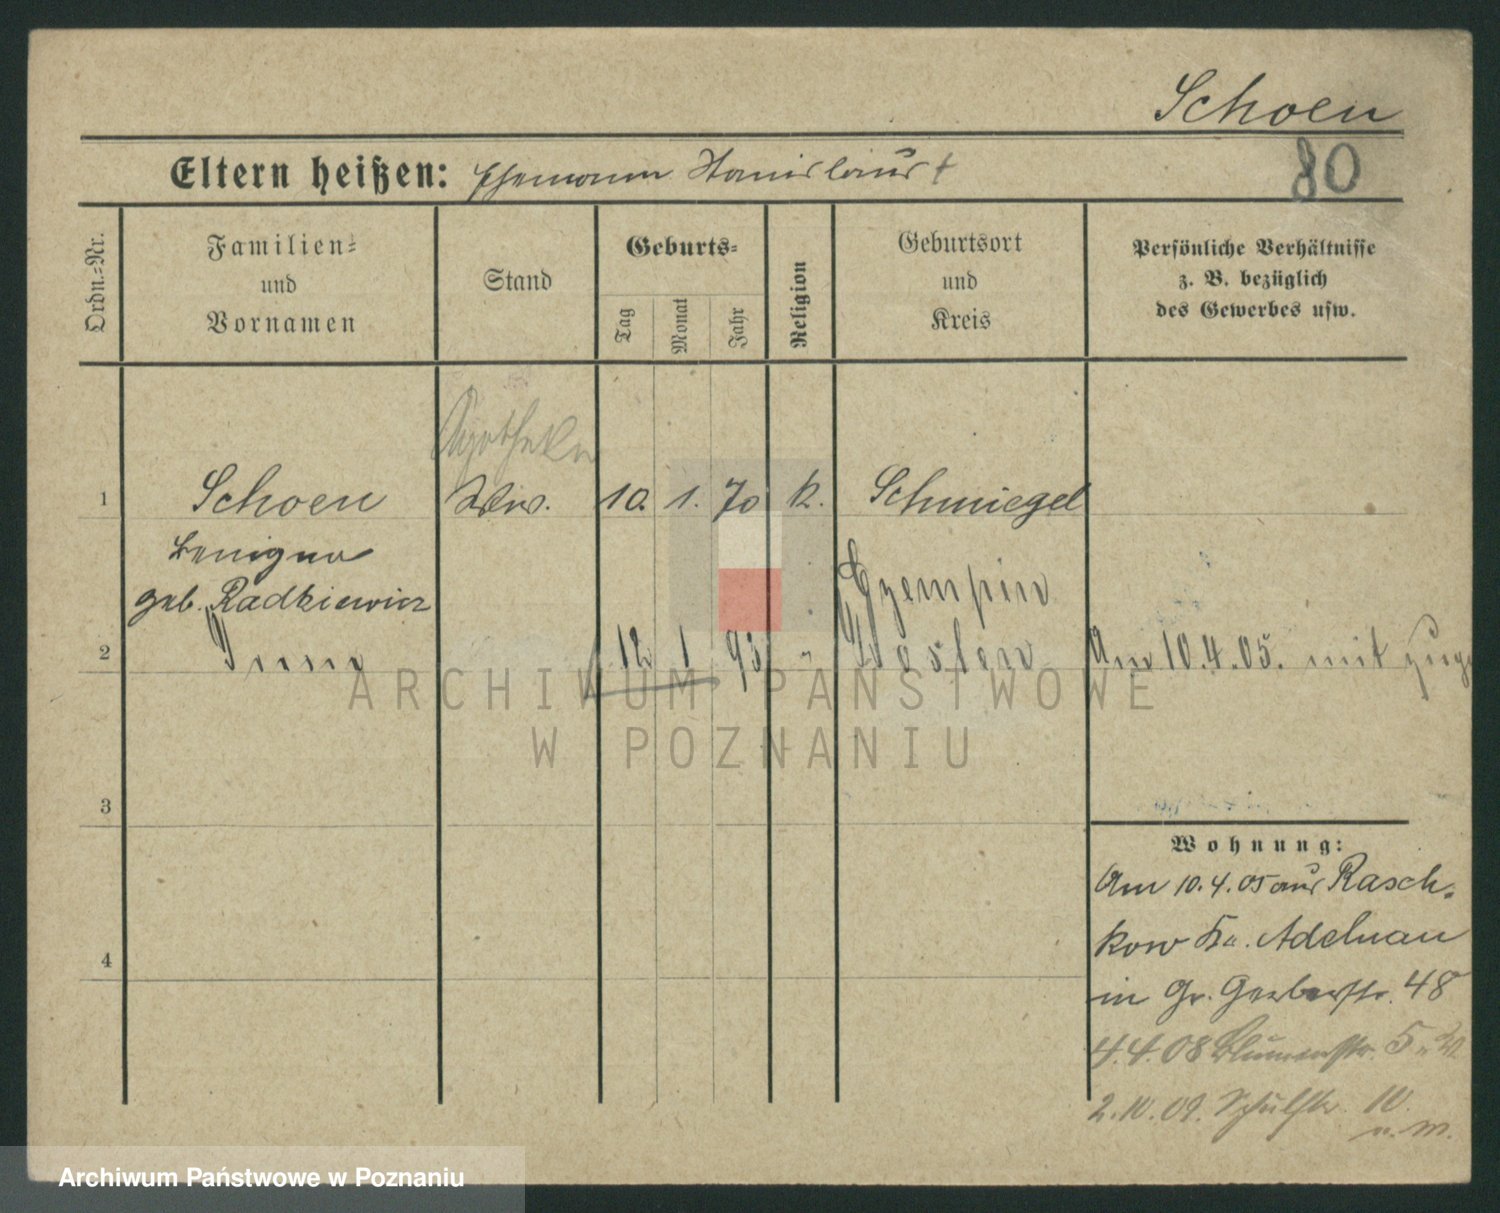 Schoen
80
Eltern heißen: Ehemann Stanislaus †
Ordn.-Nr.
Familien-
und
Vornamen
Stand
Geburts-
Tag
Monat
Jahr
Religion
Geburtsort
und
Kreis
Persönliche Verhältnisse
z. B. bezüglich
des Gewerbes usw.
Apotheke
1 Schoen Ww. 10. 1. 70 k. Schmiegel
Benigna
geb. Radkiewicz
Czempin
2 12 1 93 " Kosten Am 10.4.05. mit zuge
ARCHIWUM PAŃSTWOWE
W POZNANIU
3
4
Wohnung:
Am 10.4.05 aus Rasch-
kow Kr. Adelnau
in Gr. Gerberstr. 48
4.4.08 Blumenstr. 5
2.10.09. Schulstr. 10.
Archiwum Państwowe w Poznaniu